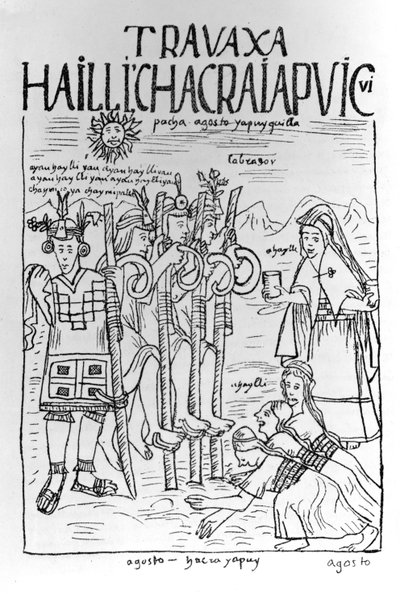 TRAVAXA
HAILLICHACRAIAPVIC
VI
pacha · agosto yapuyquilla
labrador
ayau haylli yau ayau haylli yau
ayau haylli yau ayau haylli yau
chaymi coya
ahaylli
ahaylli
agosto — hacra yapuy
agosto